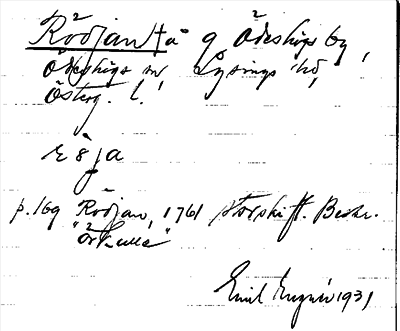 Rödjan ta g Ödeshögs by,
Ödeshögs sn, Lysings hd,
Österg. l.
röja
p. 169 Rödjan, 1761 storskift. Beskr.
"Örkulla"
Emil 1931